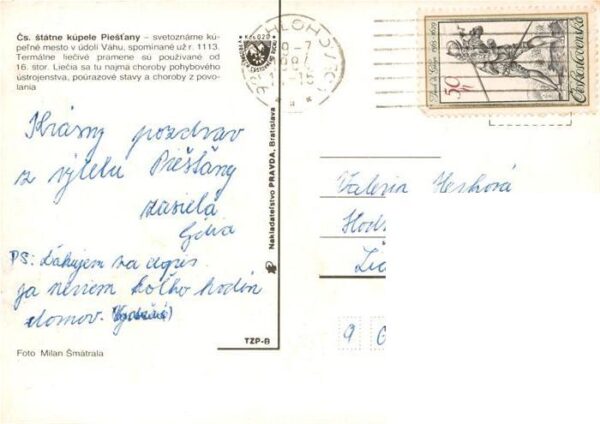 Čs. štátne kúpele Piešťany – svetoznáme kú-
peľné mesto v údolí Váhu, spomínané už r. 1113.
Termálne liečivé pramene sú používané od
16. stor. Liečia sa tu najmä choroby pohybového
ústrojenstva, poúrazové stavy a choroby z povo-
lania
Krásny pozdrav
z výletu Piešťany
zasiela
PS: Ďakujem za
ja neviem koľko hodín
domov.
Foto Milan Šmátrala
Nakladateľstvo PRAVDA, Bratislava
TZP-8
HLOHOVEC 1
50 h
Československo
Valeria
Hods
9